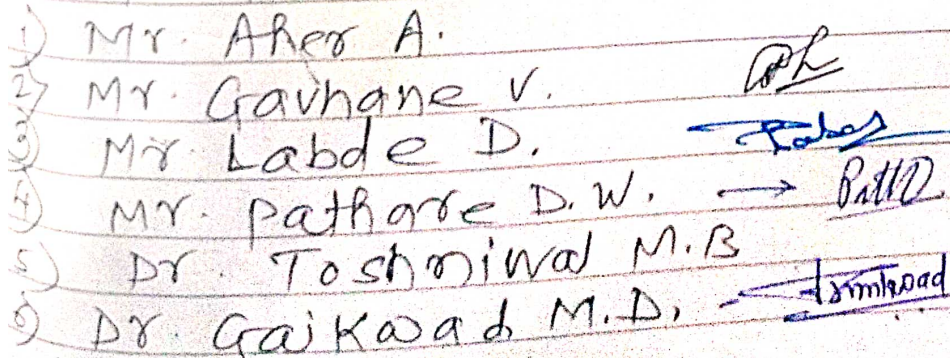 1) Mr. Aher A.
2) Mr. Gavhane V.
3) Mr Labde D.
4) Mr. Pathare D.W. →
5) Dr. Toshniwal M.B
6) Dr. Gaikwad M.D.